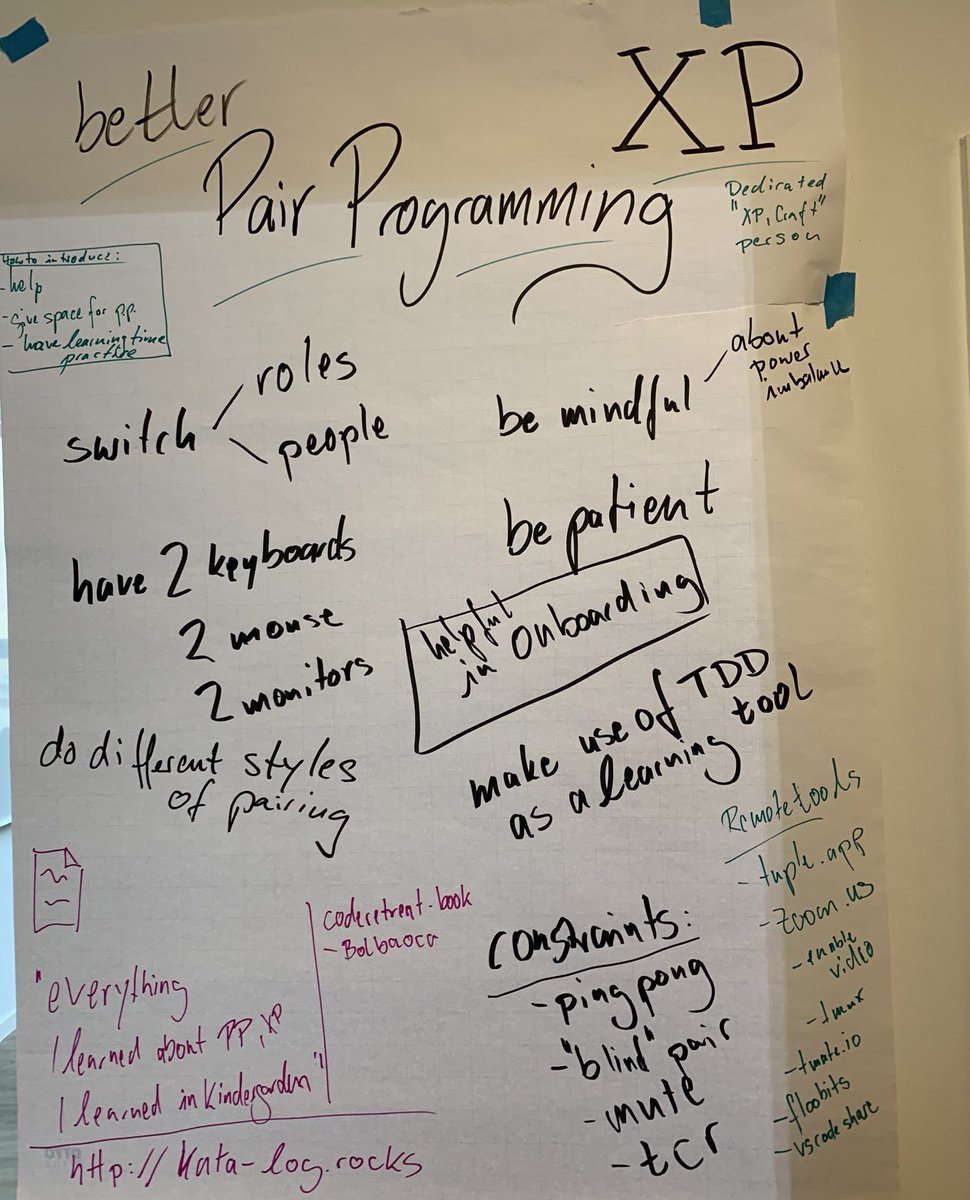 better
Pair Programming
XP
Dedicated
"XP, Craft"
person
How to introduce:
- help
- give space for pp.
- have learning time
practice
switch
roles
people
be mindful
about
power
imbalance
have 2 keyboards
2 mouse
2 monitors
be patient
helpful
in Onboarding
do different styles
of pairing
make use of TDD
as a learning tool
"everything
I learned about PP, XP
I learned in Kindergarden"
coderetreat-book
- Bolboaca
http://kata-log.rocks
constraints:
- ping pong
- "blind" pair
- mute
- tcr
Remotetools
- tuple.app
- zoom.us
- enable
video
- tmux
- tmate.io
- floobits
- vscode share